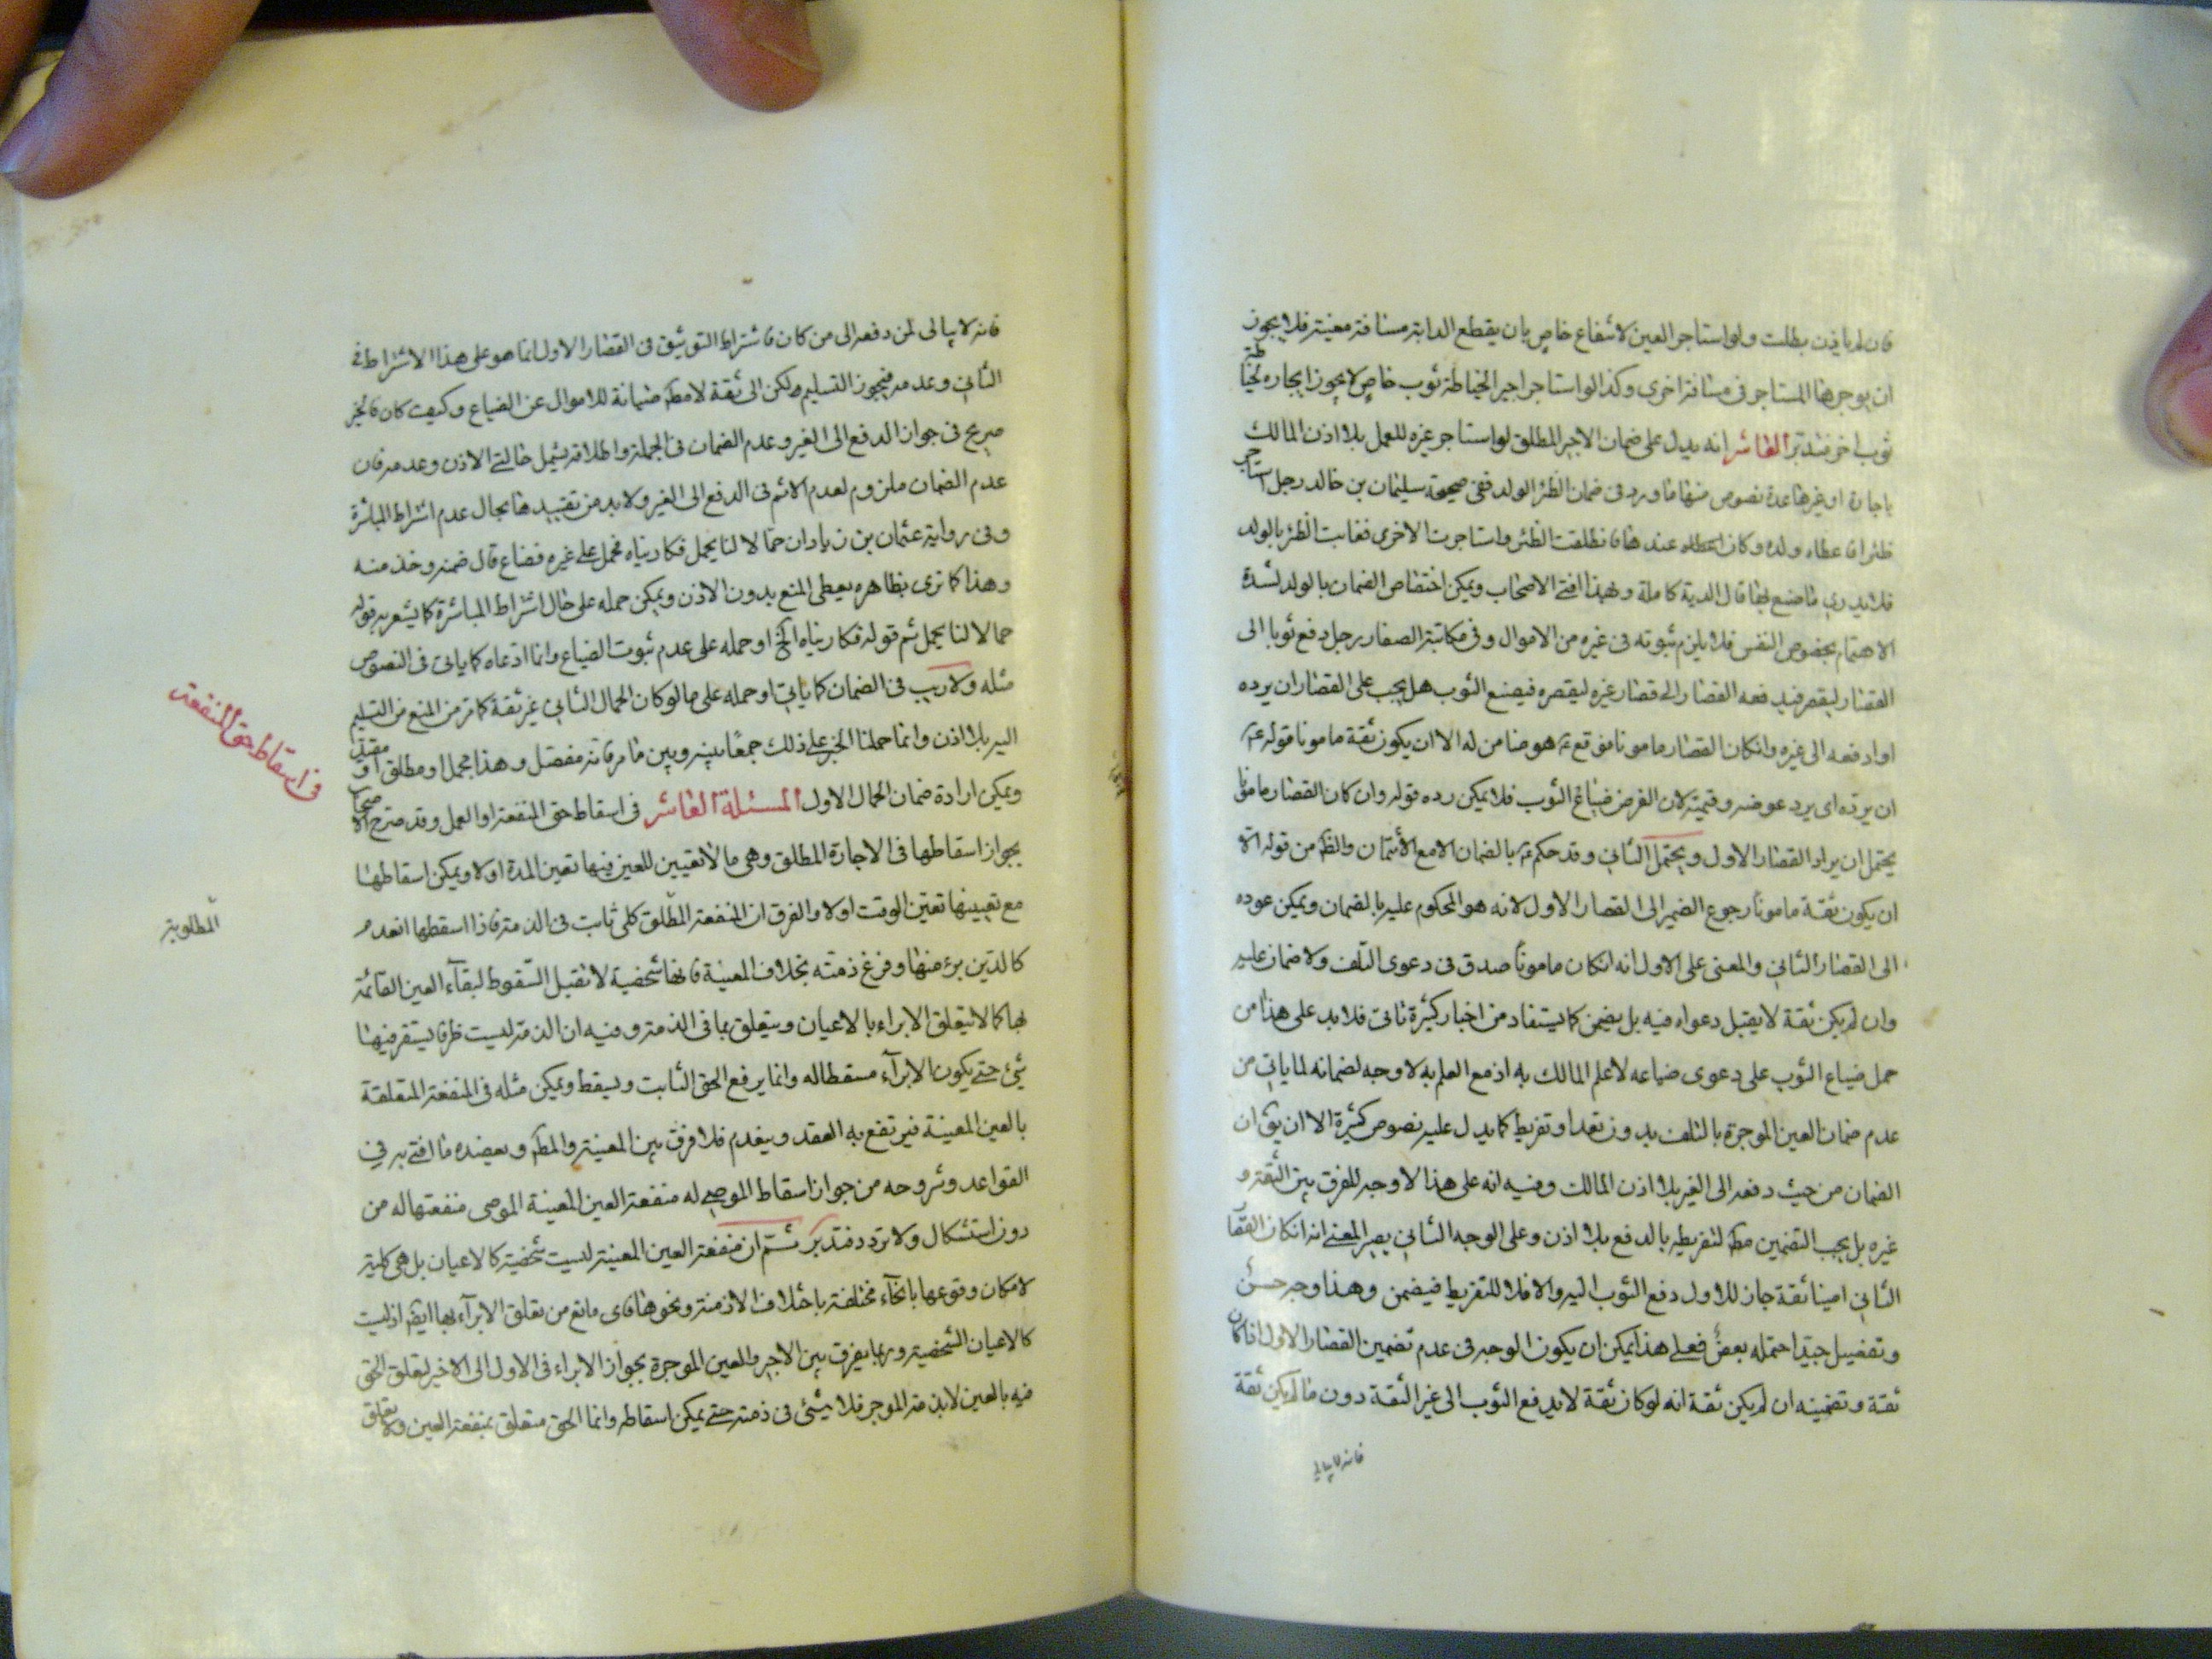 فان لم ياذن بطلت ولو استاجر العين لانتفاع خاص بان يقطع الدابة مسافة معينة فلا يجوز
ان يوجرها المستاجر فى مسافة اخرى وكذا لو استاجر اجير الخياطة ثوب خاص لا يجوز ايجاره لخياطة
ثوب اخر فتدبر العاشر انه يدل على ضمان الاجير المطلق لو استاجر غيره للعمل بلا اذن المالك
باجارة او غيرها عدة نصوص منها ما ورد فى ضمان الظئر الولد ففى صحيحة سليمان بن خالد رجل استاجر
ظئرا فاعطاه ولده وكان عندها فانطلقت الظئر واستاجرت الاخرى فغابت الظئر بالولد
فلا يدرى ما صنع بها قال الدية كاملة وبهذا افتى الاصحاب ويمكن اختصاص الضمان بالولد لشدة
الاهتمام بخصوص النفس فلا يلزم ثبوته فى غيره من الاموال وفى مكاتبة الصفار رجل دفع ثوبا الى
القصار ليقصر فيدفعه القصار الى قصار غيره ليقصره فيضيع الثوب هل يجب على القصار ان يرده
او ادفعه الى غيره وانكان القصار مامونا فوقع ع هو ضامن له الا ان يكون ثقة مامونا قوله ع
ان يرده اى يرد عوضه وقيمته لان الفرض ضياع الثوب فلا يمكن رده قوله وان كان القصار مامونا
يحتمل ان يراد القصار الاول ويحتمل الثانى وقد حكم ع بالضمان الا مع الائتمان والظ من قوله الا
ان يكون ثقة مامونا رجوع الضمير الى القصار الاول لانه هو المحكوم عليه بالضمان ويمكن عوده
الى القصار الثانى والمعنى على الاول انه انكان مامونا صدق فى دعوى التلف ولا ضمان عليه
وان لم يكن ثقة لا يقبل دعواه فيه بل يضمن كما يستفاد من اخبار كثيرة تاتى فلا بد على هذا من
حمل ضياع الثوب على دعوى ضياعه لا علم المالك به اذ مع العلم به لا وجه لضمانه لما ياتى من
عدم ضمان العين الموجرة بالتلف بدون تعد او تفريط كما يدل عليه نصوص كثيرة الا ان يق ان
الضمان من حيث دفعه الى الغير بلا اذن المالك وفيه انه على هذا لا وجه للفرق بين الثقة و
غيره بل يجب التضمين مط لتفريطه بالدفع بلا اذن وعلى الوجه الثانى يصير المعنى انه انكان القصار
الثانى امينا ثقة جاز للاول دفع الثوب اليه والا فلا للتفريط فيضمن وهذا وجه حسن
وتفصيل جيد احتمله بعض فعلى هذا يمكن ان يكون الوجه فى عدم تضمين القصار الاول اذا كان
ثقة وتضمينه ان لم يكن ثقة انه لو كان ثقة لا يدفع الثوب الى غير الثقة دون ما لم يكن ثقة
فانه لا يبالى
فانه لا يبالى لمن دفعه الى من كان فاشتراط التوثيق فى القصار الاول انما هو على هذا الاشتراط فى
الثانى وعدمه فيجوز التسليم ولكن الى ثقة لا مط صيانة للاموال عن الضياع وكيف كان فالخبر
صريح فى جواز الدفع الى الغير وعدم الضمان فى الجملة واطلاقه يشمل حالتى الاذن وعدمه فان
عدم الضمان ملزوم لعدم الاثم فى الدفع الى الغير ولا بد من تقييدها بحال عدم اشتراط المباشرة
وفى رواية عثمان بن زياد ان حمالا لنا يحمل فكاريناه فحمل على غيره فضاع قال ضمنه وخذ منه
وهذا كما ترى بظاهره يعطى المنع بدون الاذن ويمكن حمله على حال اشتراط المباشرة كما يشعر به قوله
حمالا لنا يحمل ثم قوله فكاريناه الخ او حمله على عدم ثبوت الضياع وانما ادعاه كما ياتى فى النصوص
مثله ولا ريب فى الضمان كما ياتى او حمله على ما لو كان الحمال الثانى غير ثقة كما مر من المنع من التسليم
اليه بلا اذن وانما حملنا الخبر على ذلك جمعًا بينه وبين ما مر فانه مفصل وهذا مجمل او مطلق او مقيد
ويمكن ارادة ضمان الحمال الاول المسئلة العاشر فى اسقاط حق المنفعة او العمل وقد صرح الاصحاب
فى اسقاط حق المنفعة
بجواز اسقاطها فى الاجارة المطلق وهى ما لا تعيين للعين فيها تعين المدة او لا ويمكن اسقاطها
مع تعيينها تعين الوقت او لا والفرق ان المنفعة المطلق كلى ثابت فى الذمة فاذا اسقطها انعدم
المطلوبة
كالدين برء منها وفرغ ذمته بخلاف المعينة فانها شخصية لا تقبل السقوط لبقآء العين القائمة
بها كما لا يتعلق الابراء بالاعيان ويتعلق بما فى الذمة وفيه ان الذمة ليست ظرفا يستقر فيها
شئ حتى يكون الابرآء مسقطا له وانما يرفع الحق الثابت ويسقط ويمكن مثله فى المنفعة المتعلقة
بالعين المعينة فيرتفع به العقد وينعدم فلا فرق بين المعينة والمط ويعضده ما افتى به فى
القواعد وشروحه من جواز اسقاط الموصى له منفعة العين المعينة الموصى منفعتها له من
دون استشكال ولا تردد فتدبر ثم ان منفعة العين المعينة ليست شخصية كالاعيان بل هى كلية
لامكان وقوعها بانحآء مختلفة باختلاف الازمنة ونحوها فاى مانع من تعلق الابرآء بها ايضا اذ ليست
كالاعيان الشخصية وربما يفرق بين الاجير والعين الموجرة بجواز الابراء فى الاول الى الاخير لتعلق الحق
فيه بالعين لا بذمة الموجر فلا شئ فى ذمته حتى يمكن اسقاطه وانما الحق متعلق بمنفعة العين ولا تعلق